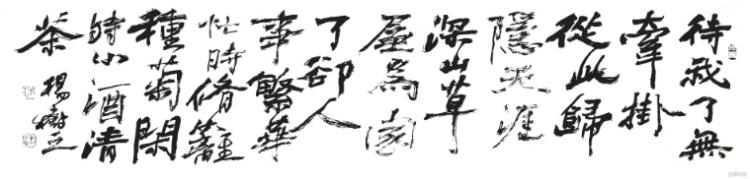 待我了無
牽掛
從此歸
隱天涯
深山草
屋為家
了卻人
事繁華
忙時脩籬
種菊閑
時小酒清
茶 楊樹之